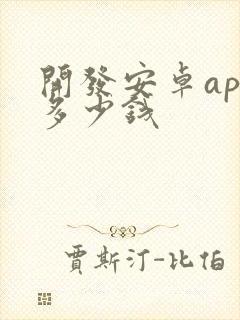 開發安卓ap
多少錢
賈斯汀-比伯